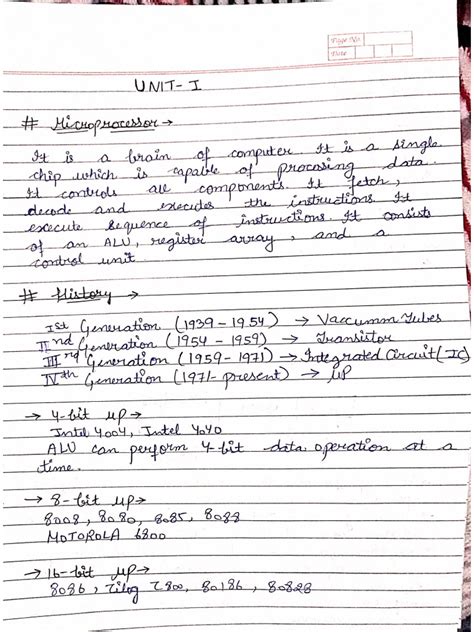 Page No.
Date
UNIT-I
# Microprocessor →
It is a brain of computer. It is a single
chip which is capable of procosing data.
It controls all components. It fetch,
decode and executes the instructions. It
execute sequence of instructions. It consists
of an ALU, register array, and a
control unit
# History →
Ist Generation (1939 - 1954) → Vaccumm Tubes
IInd Generation (1954 - 1959) → Transistor
IIIrd Generation (1959 - 1971) → Integrated Circuit (IC)
IVth Generation (1971- present) → μP
→ 4-bit μP →
Intel 4004, Intel 4040
ALU can perform 4-bit data operation at a
time.
→ 8-bit μP →
8008, 8080, 8085, 8088
MOTOROLA 6800
→ 16-bit μP →
8086, Zilog Z800, 80186, 80828